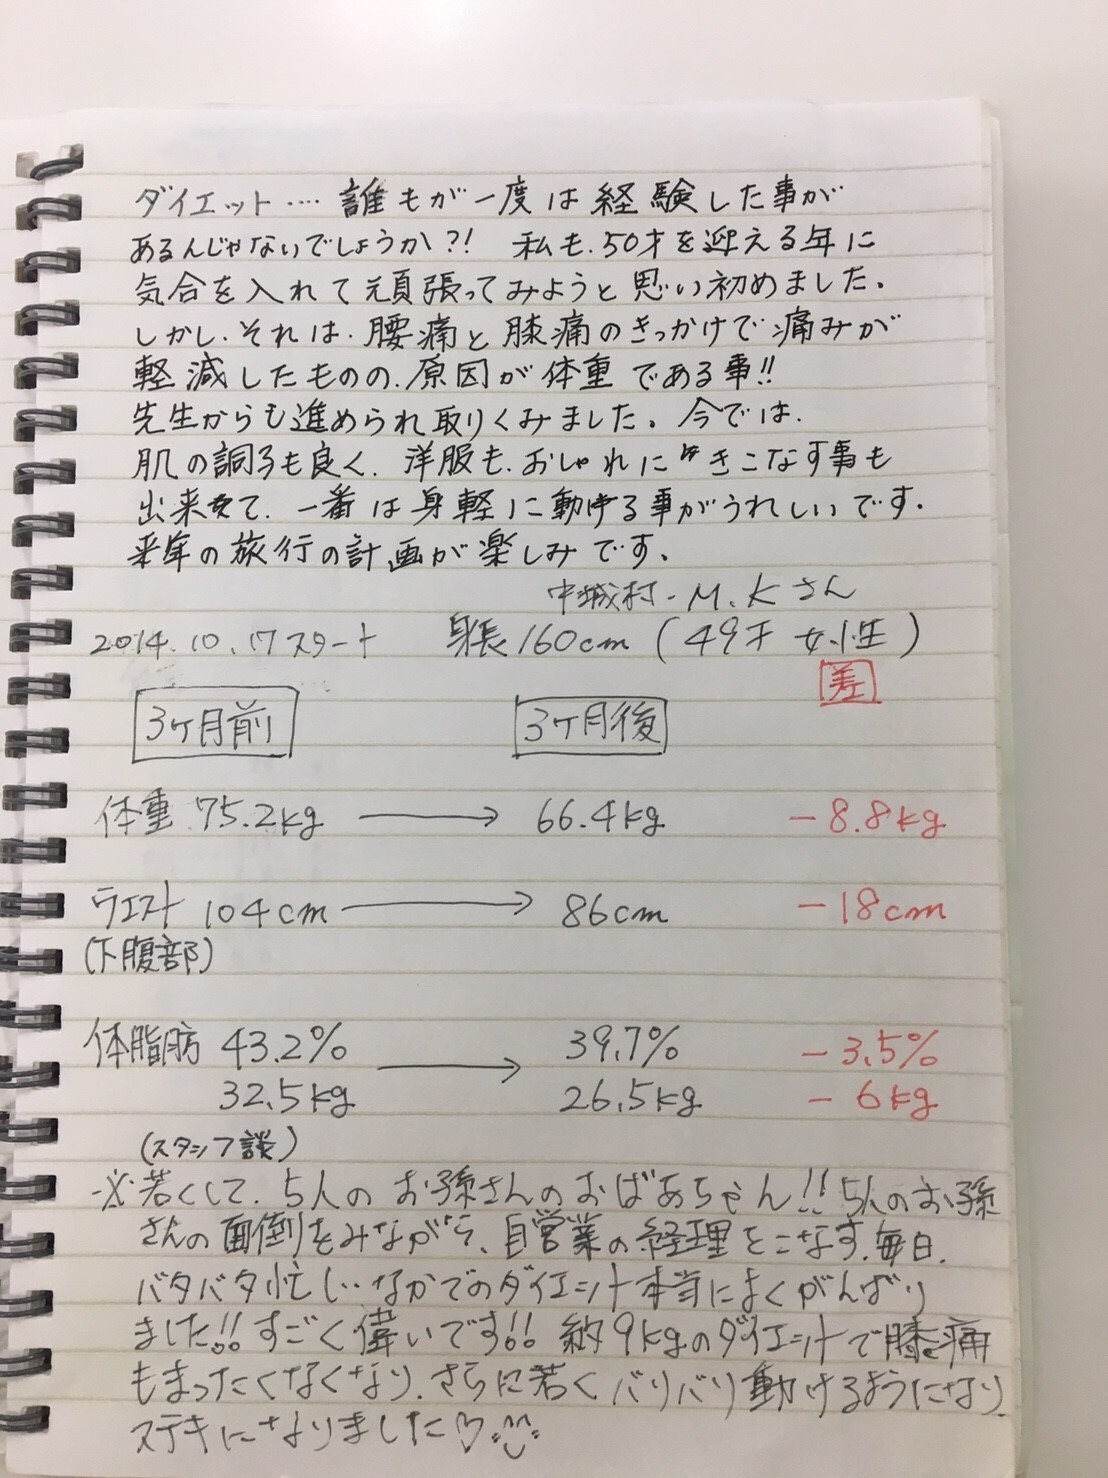 ダイエット‥‥ 誰もが一度は経験した事が
あるんじゃないでしょうか?! 私も、50才を迎える年に
気合を入れて頑張ってみようと思い初めました。
しかし、それは、腰痛と膝痛のきっかけで痛みが
軽減したものの、原因が体重である事!!
先生からも進められ取りくみました。今では、
肌の調子も良く、洋服も、おしゃれにきこなす事も
出来て、一番は身軽に動ける事がうれしいです。
来年の旅行の計画が楽しみです。
中城村-M.Kさん
2014.10.17スタート 身長160cm(49才 女性)
差
3ヶ月前 3ヶ月後
体重 75.2kg → 66.4kg -8.8kg
ウエスト 104cm → 86cm -18cm
(下腹部)
体脂肪 43.2% → 39.7% -3.5%
32.5kg 26.5kg -6kg
(スタッフ談)
※若くして、5人のお孫さんのおばあちゃん!! 5人のお孫
さんの面倒をみながら、自営業の経理をこなす、毎日、
バタバタ忙し‥なかでのダイエット本当によくがんばり
ました!! すごく偉いです!! 約9kgのダイエットで膝痛
もまったくなくなり、さらに若くバリバリ動けるようになり、
ステキになりました♡